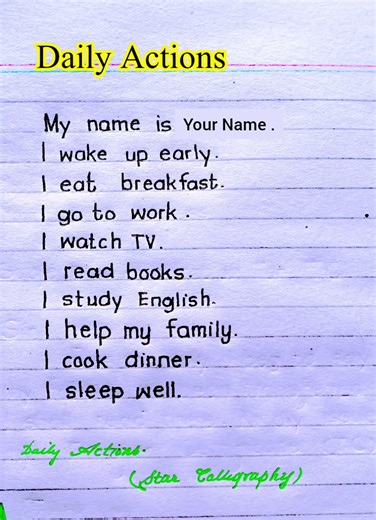 Daily Actions
My name is Your Name.
I wake up early.
I eat breakfast.
I go to work.
I watch TV.
I read books.
I study English.
I help my family.
I cook dinner.
I sleep well.
Daily Actions.
(Star Calligraphy)